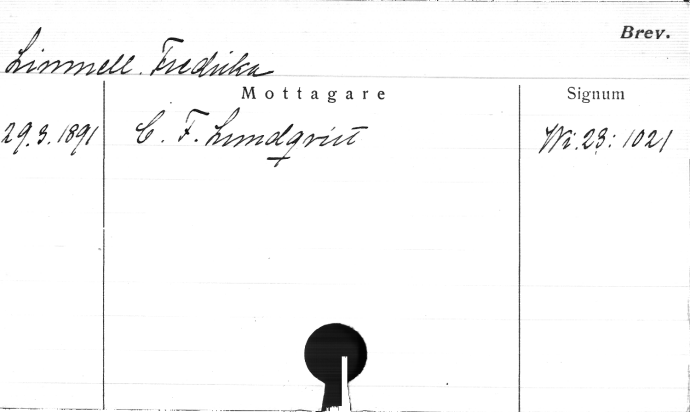 Brev.
Limnell. Fredrika
Mottagare Signum
29.3.1891 C. F. Lundqvist Wi. 23: 1021